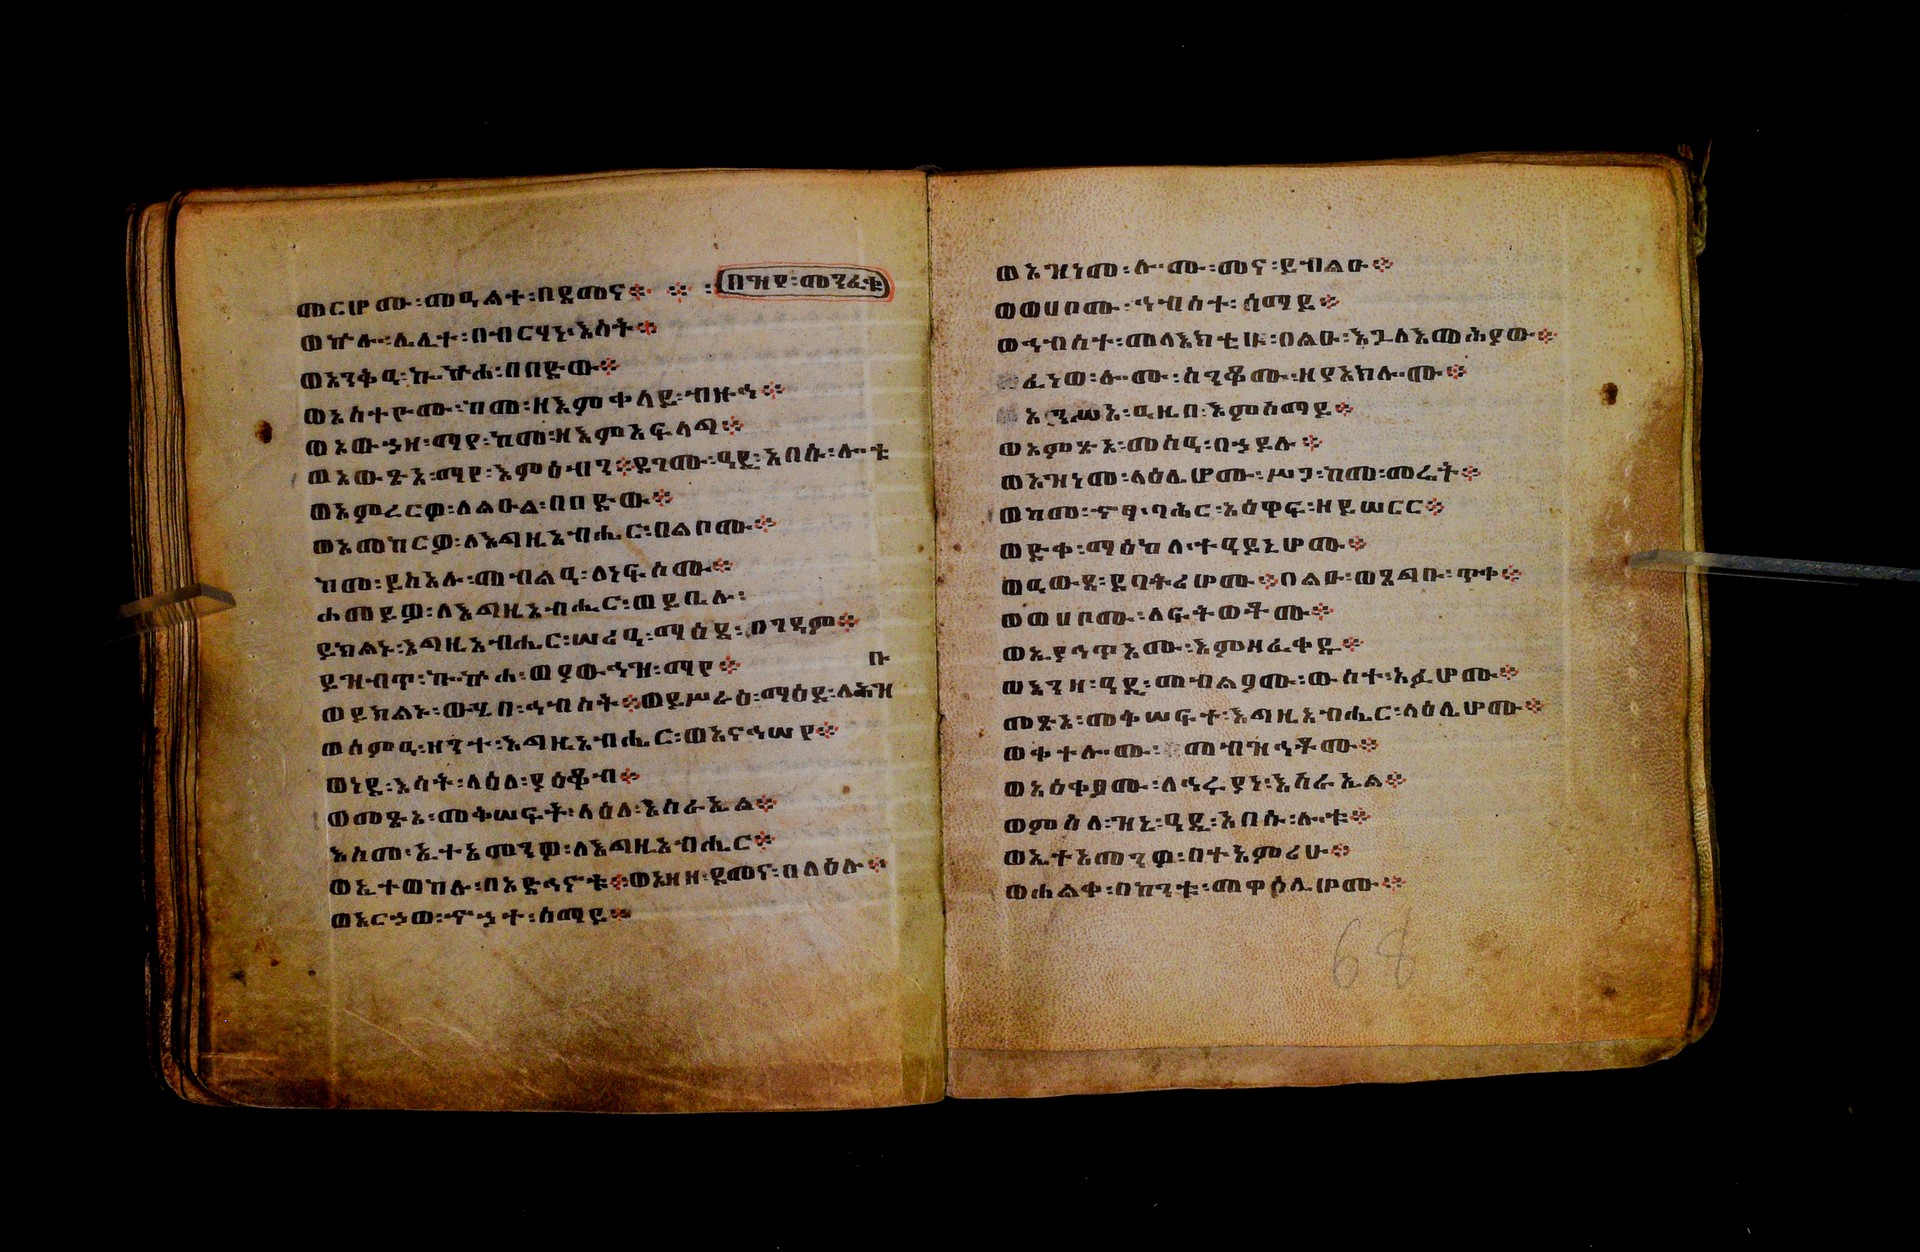 መርሆሙ፡መዓልተ፡በደመና፨ ፨ ፡በዝየ፡መንፈቁ
ወኵሉ፡ሌሊተ፡በብርሃነ፡እሳት፨
ወአንቅዓ፡ኰኵሐ፡በበድው፨
ወአስተዮሙ፡ከመ፡ዘእምቀላይ፡ብዙኅ፨
ወአውኃዘ፡ማየ፡ከመ፡ዘእምአፍላጋ፨
ወአውጽአ፡ማየ፡እምዕብን፨ደገሙ፡ዓዲ፡አበሱ፡ሎቱ
ወአምረርዎ፡ለልዑል፡በበድው፨
ወአመከርዎ፡ለእግዚአብሔር፡በልቦሙ፨
ከመ፡ይስአሉ፡መብልዓ፡ለነፍሶሙ፨
ሐመይዎ፡ለእግዚአብሔር፡ወይቤሉ፡
ይክልኑ፡እግዚአብሔር፡ሠሪዓ፡ማዕደ፡በገዳም፨
ይዝብጥ፡ኰኵሐ፡ወያውኅዝ፡ማየ፨
ወይክልኑ፡ውሂበ፡ኅብስት፨ወይሥራዕ፡ማዕደ፡ለሕዝ
ቡ
ወሰምዓ፡ዘንተ፡እግዚአብሔር፡ወአናኅሠየ፨
ወነደ፡እሳት፡ላዕለ፡ያዕቆብ፨
ወመጽአ፡መቅሠፍት፡ላዕለ፡እስራኤል፨
እስመ፡ኢተአመንዎ፡ለእግዚአብሔር፨
ወኢተወከሉ፡በአድኅኖቱ፨ወአዘዘ፡ደመና፡በላዕሉ፨
ወአርኃወ፡ኖኅተ፡ሰማይ፨
ወአዝነመ፡ሎሙ፡መና፡ይብልዑ፨
ወወሀቦሙ፡ኅብስተ፡ሰማይ፨
ወኅብስተ፡መላእክቲሁ፡በልዑ፡እጓለእመሕያው፨
ፈነወ፡ሎሙ፡ስንቆሙ፡ዘያአክሎሙ፨
አንሥአ፡ዓዜበ፡እምሰማይ፨
ወአምጽአ፡መስዓ፡በኃይሉ፨
ወአዝነመ፡ላዕሌሆሙ፡ሥጋ፡ከመ፡መሬት፨
ወከመ፡ኖፃ፡ባሕር፡አዕዋፍ፡ዘይሠርር፨
ወድቀ፡ማዕከለ፡ተዓይኒሆሙ፨
ወዓውደ፡ደባትሪሆሙ፨በልዑ፡ወጸግቡ፡ጥቀ፨
ወወሀቦሙ፡ለፍትወቶሙ፨
ወኢያኅጥኦሙ፡እምዘፈቀዱ፨
ወእንዘ፡ዓዲ፡መብልዖሙ፡ውስተ፡አፉሆሙ፨
መጽአ፡መቅሠፍተ፡እግዚአብሔር፡ላዕሌሆሙ፨
ወቀተሎሙ፡ለመብዝኅቶሙ፨
ወአዕቀፆሙ፡ለኅሩያነ፡እስራኤል፨
ወምስለ፡ዝኒ፡ዓዲ፡አበሱ፡ሎቱ፨
ወኢተአመንዎ፡በተአምሪሁ፨
ወሐልቀ፡በከንቱ፡መዋዕሊሆሙ፨
68